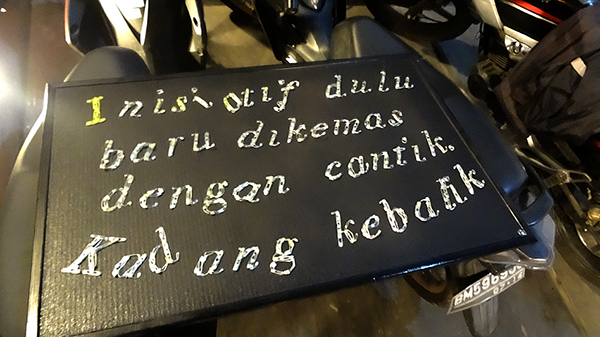 Inisiatif dulu
baru dikemas
dengan cantik.
Kadang kebalik